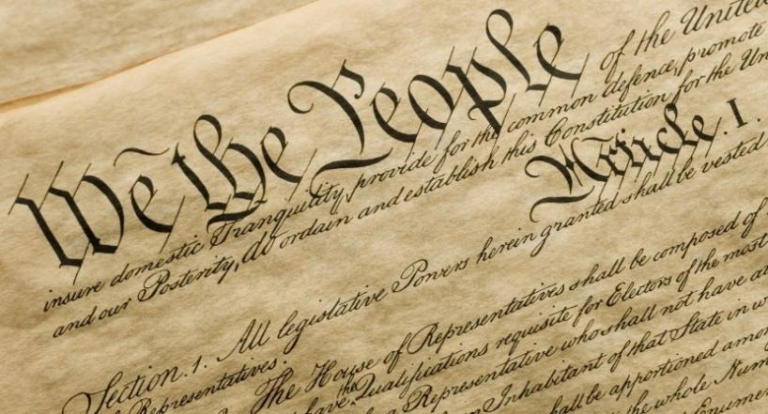 We the People of the United
insure domestic Tranquility, provide for the common defence, promote
and our Posterity, do ordain and establish this Constitution for the Un
Article. I.
Section. 1. All legislative Powers herein granted shall be vested
of Representatives.
The House of Representatives shall be composed of
have the Qualifications requisite for Electors of the most
a Representative who shall not have at
Inhabitant of that State in w
shall be apportioned amon
the whole Num
Enumer